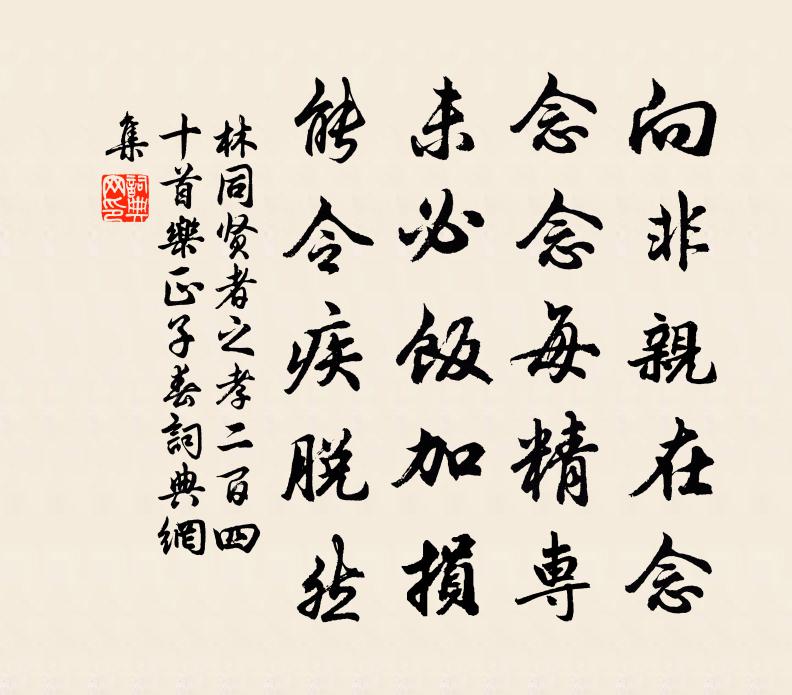 向非親在念
念念每精専
未必飯加損
能令疾脱然
林同贤者之孝二百四
十首樂正子春詞典網
集
詞典
网印